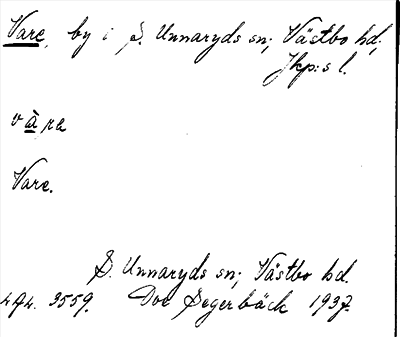 Vare, by i S. Unnaryds sn; Västbo hd,
Jkp:s l.
v à, ra
Vare.
S. Unnaryds sn; Västbo hd.
3559. Segerbäck 1937.